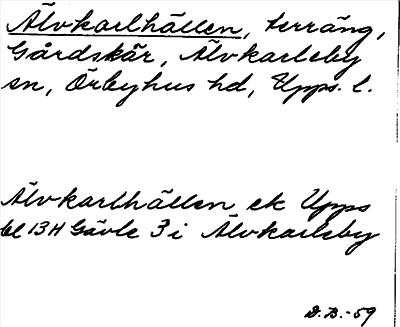 Älvkarlhällen, terräng,
Gårdskär, Älvkarleby
sn, Örbyhus hd, Upps. l.
Älvkarlhällen ek Upps
bl 13H Gävle 3 i Älvkarleby
D.B.-59